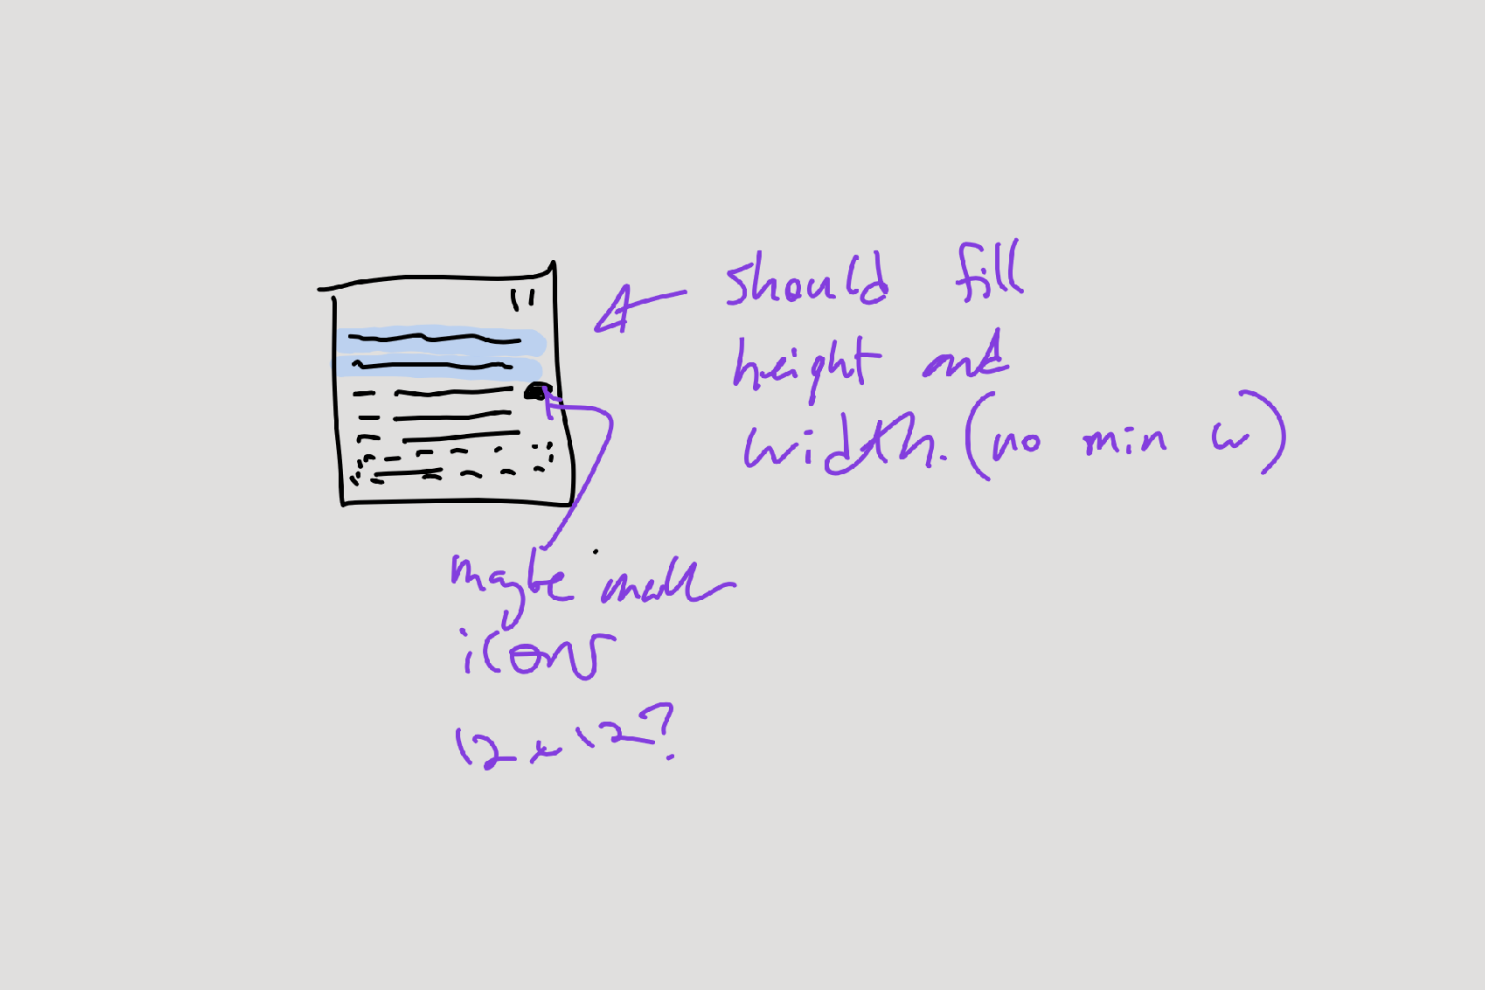 should fill
height and
width. (no min w)
maybe small
icons
12x12?